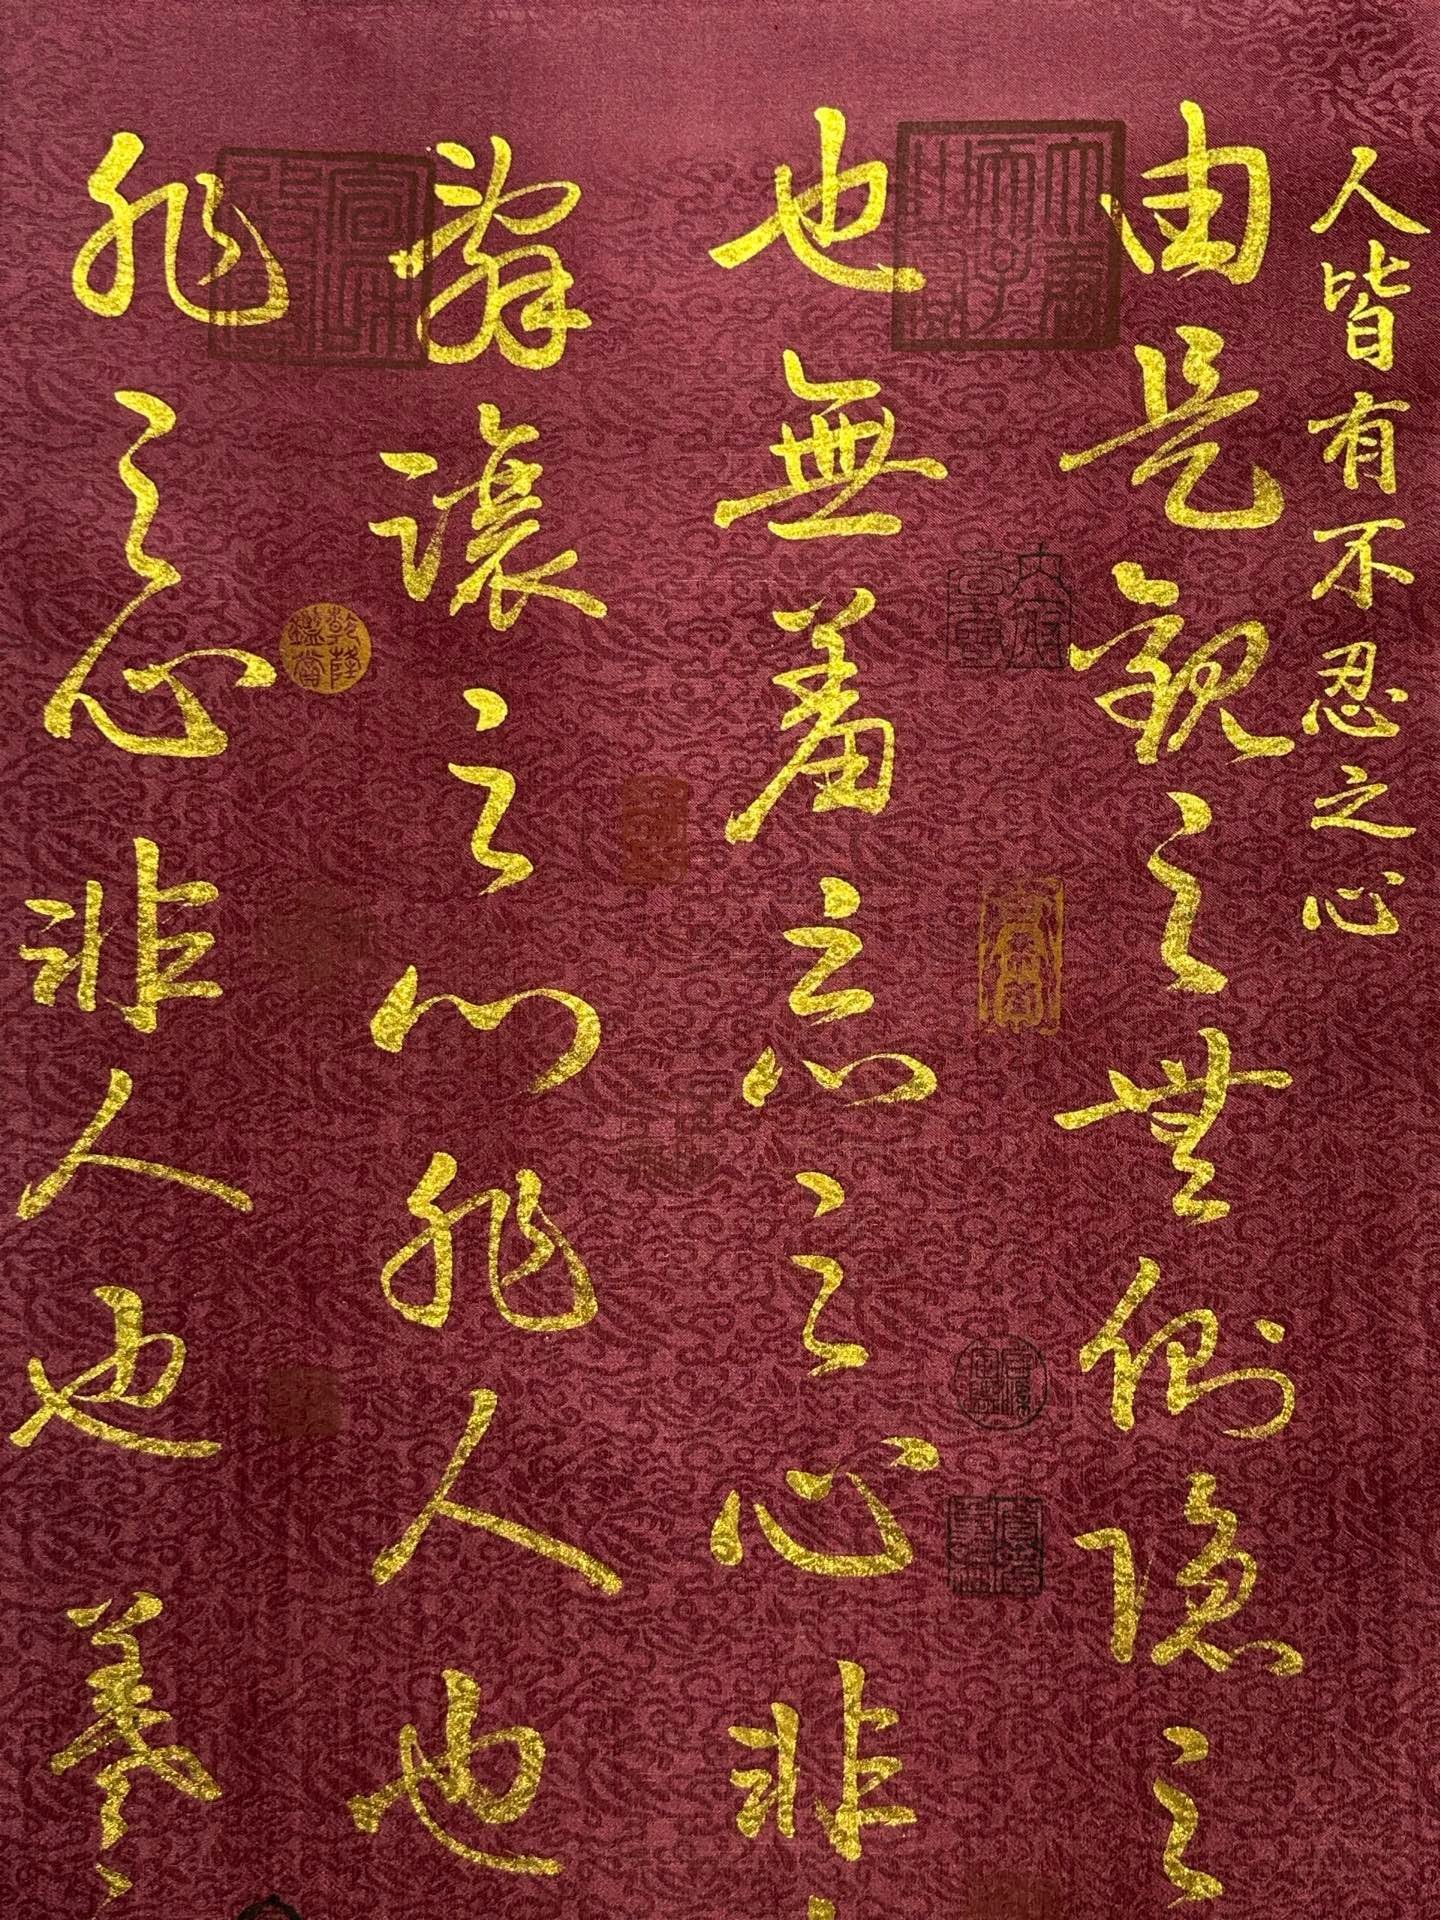 人皆有不忍之心
由是觀之無側隱之
也無羞惡之心非
辭讓之心非人也
非之心非人也
乾隆
鑑賞